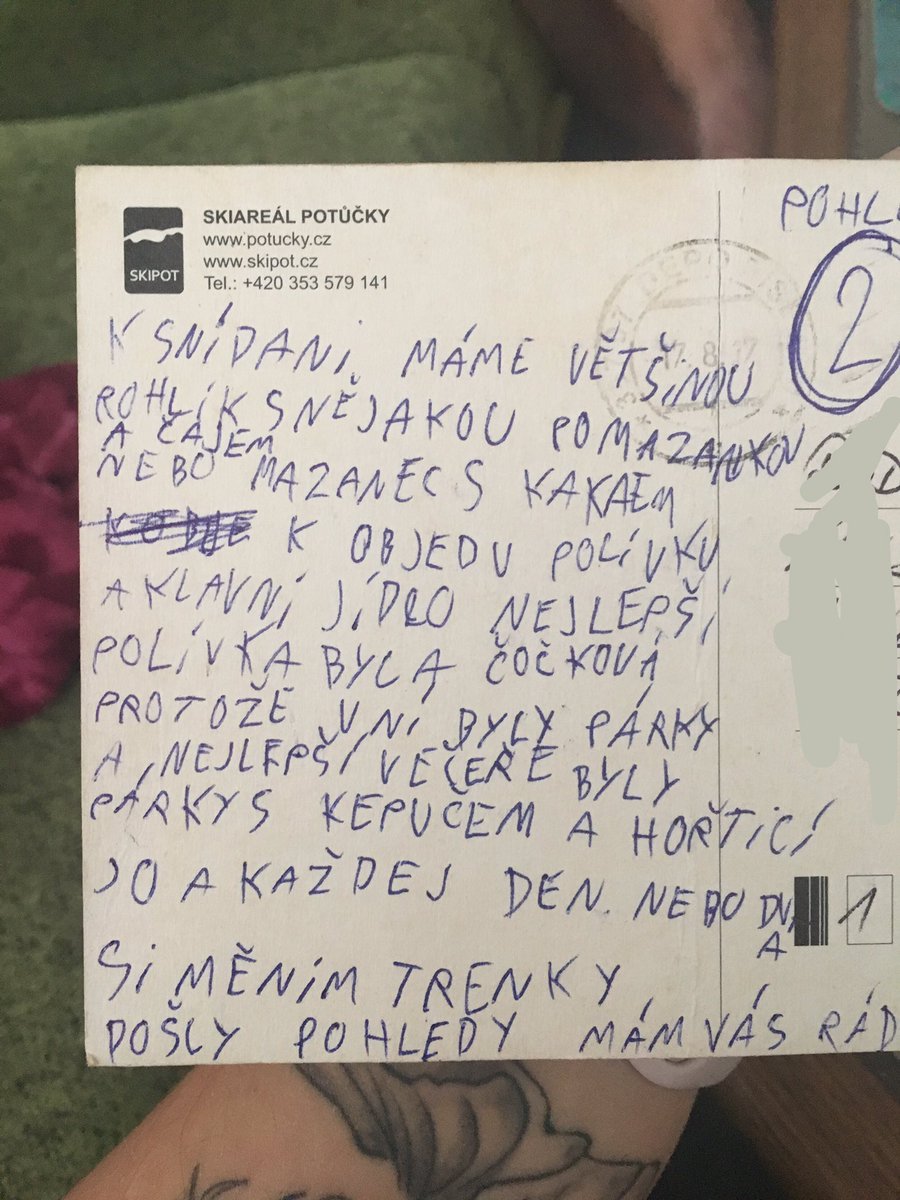 SKIAREÁL POTŮČKY
www.potucky.cz
www.skipot.cz
Tel.: +420 353 579 141
SKIPOT
17.8.17
POHL
2
K SNÍDANI MÁME VĚTŠINOU
ROHLÍK S NĚJAKOU POMAZANKOU
A ČAJEM
NEBO MAZANEC S KAKAEM
K OBJEDU POLÍVKU
A KLAVNÍ JÍDLO NEJLEPŠÍ
POLÍVKA BYLA ČOČKOVÁ
PROTOŽE V NÍ BYLY PÁRKY
A NEJLEPŠÍ VEČEŘE BYLY
PÁRKY S KEPUČEM A HOŘTICÍ
JO A KAŽDEJ DEN NEBO DVA
1
SI MĚNÍM TRENKY
DOŠLY POHLEDY MÁM VÁS RÁD